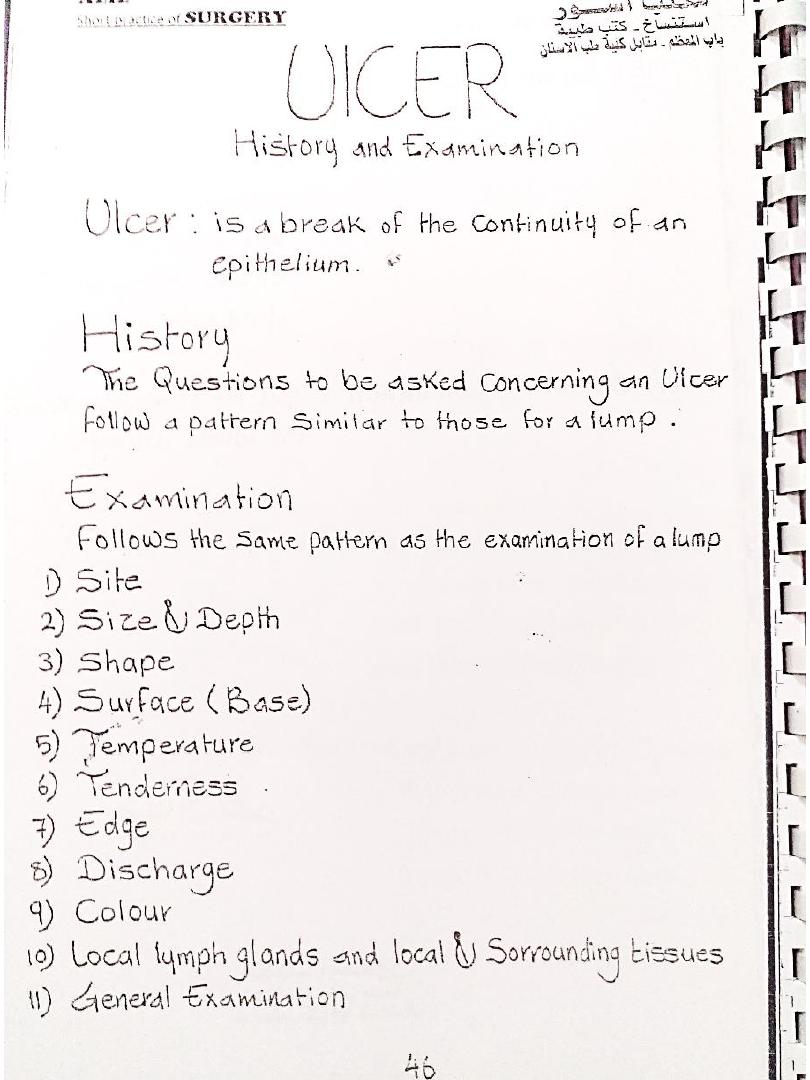 Short practice of SURGERY
استنساخ - كتب طبية
باب المعظم - مقابل كلية طب الاسنان
UlCER
History and Examination
Ulcer : is a break of the Continuity of an
epithelium.
History
The Questions to be asked Concerning an Ulcer
follow a pattern Similar to those for a lump .
Examination
Follows the Same pattern as the examination of a lump
1) Site
2) Size & Depth
3) Shape
4) Surface (Base)
5) Temperature
6) Tenderness
7) Edge
8) Discharge
9) Colour
10) Local lymph glands and local & Sorrounding tissues
11) General Examination
46